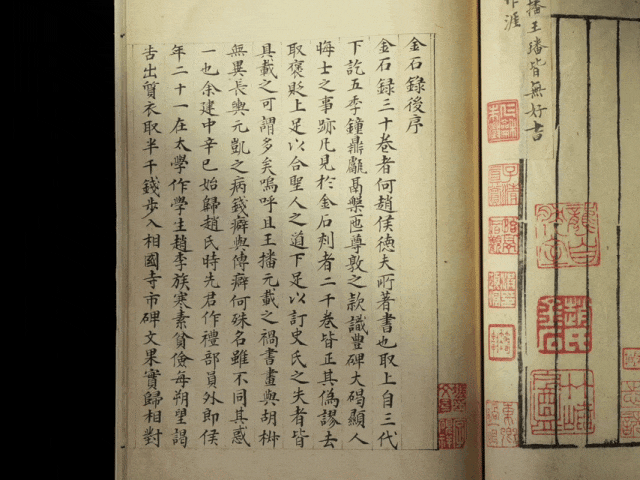 播王璠皆無好書
涯
金石録後序
金石録三十卷者何趙侯徳夫所著書也取上自三代
下訖五季鐘鼎甗鬲槃匜尊敦之款識豐碑大碣顯人
晦士之事跡凡見於金石刻者二千卷皆正其偽謬去
取褒貶上足以合聖人之道下足以訂史氏之失者皆
具載之可謂多矣嗚呼且王播元載之禍書畫與胡椒
無異長輿元凱之病錢癖與傳癖何殊名雖不同其惑
一也余建中辛巳始歸趙氏時先君作禮部員外郎侯
年二十一在太學作學生趙李族寒素貧儉每朔望謁
告出質衣取半千錢步入相國寺市碑文果實歸相對